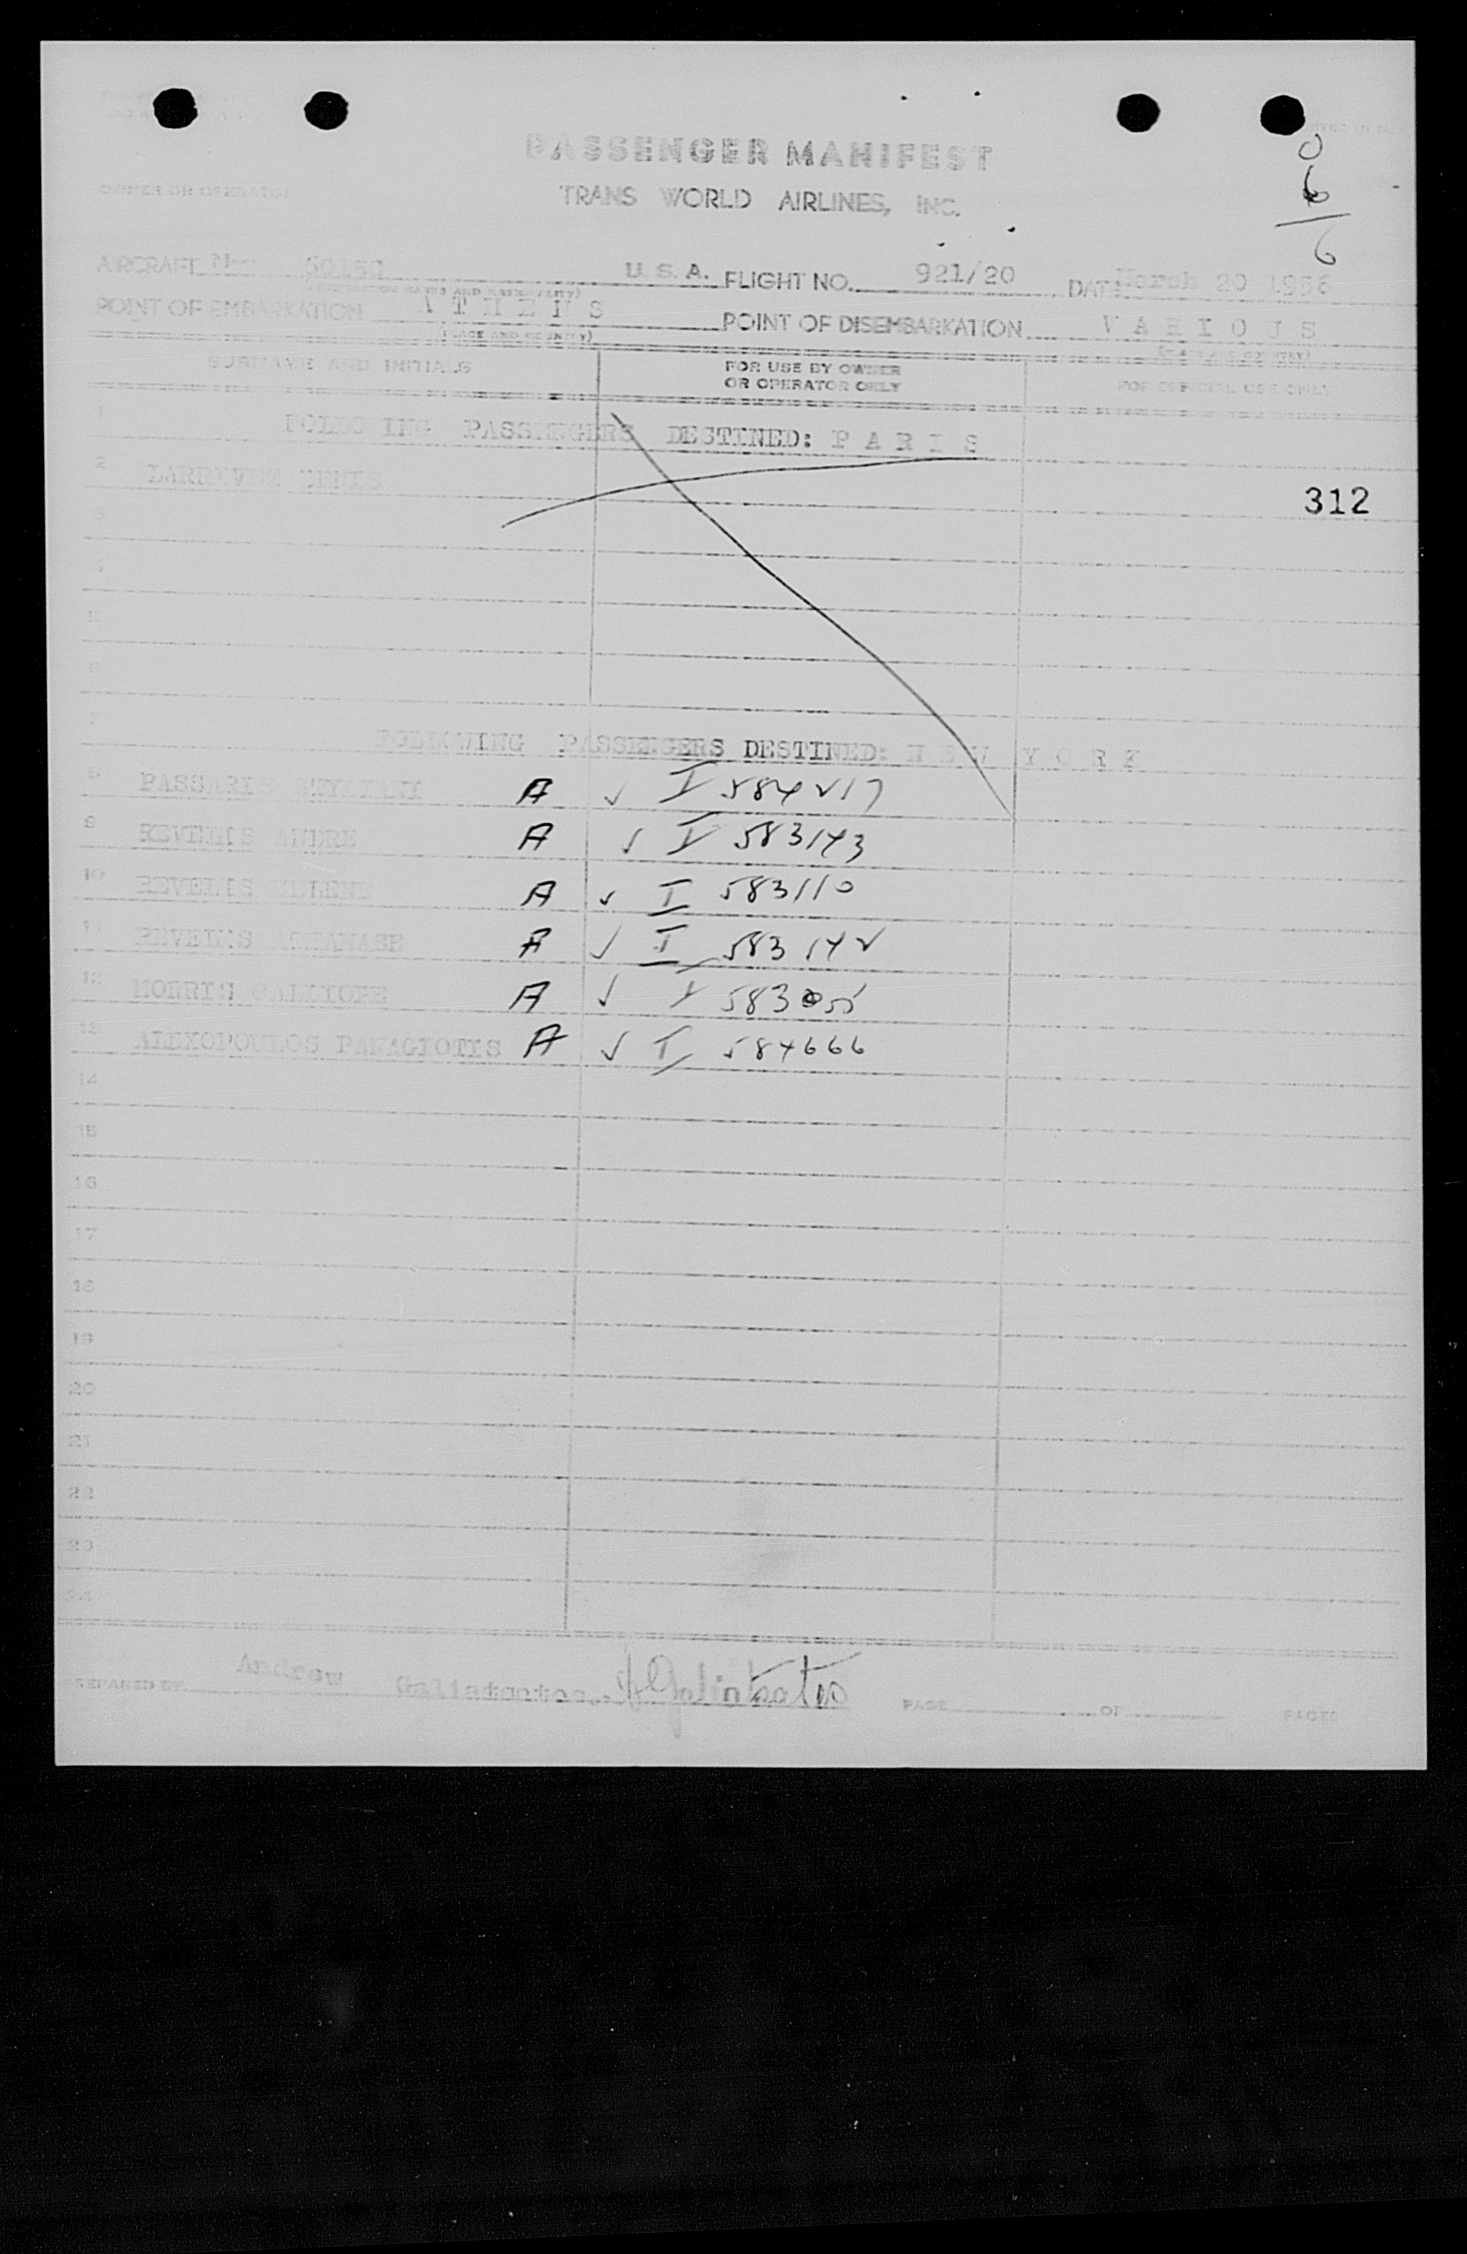 PASSENGER MANIFEST
OWNER OR OPERATOR
TRANS WORLD AIRLINES, INC.
0
6
6
AIRCRAFT U. S. A. FLIGHT NO. 921/20 DATE March 20 1956
POINT OF EMBARKATION A T H E N S POINT OF DISEMBARKATION V A R I O U S
(PLACE AND COUNTRY)
SURNAME AND INITIALS FOR USE BY OWNER OR OPERATOR ONLY FOR OFFICIAL USE ONLY
1 FOLLOWING PASSENGERS DESTINED: P A R I S
2
312
3
5
6
7 FOLLOWING PASSENGERS DESTINED: N E W Y O R K
PASSARIS A ✓ I 584217
9 REVELIS ANDRE A ✓ I 583143
10 REVELIS HELENE A ✓ I 583110
11 REVELIS ATHANASE A ✓ I 583142
12 MORRIS CALLIOPE A ✓ I 583055
13 ALEXOPOULOS PANAGIOTIS A ✓ I 584666
14
15
16
17
18
19
20
21
22
23
24
PREPARED BY Andrew Galiatsatos AGaliatsatos PAGE OF PAGES